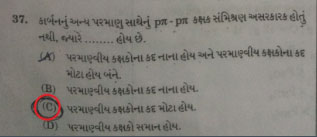 37. કાર્બનનું અન્ય પરમાણુ સાથેનું pπ - pπ કક્ષક સંમિશ્રણ અસરકારક હોતું
નથી, જ્યારે ......... હોય છે.
(A) પરમાણ્વીય કક્ષકોના કદ નાના હોય અને પરમાણ્વીય કક્ષકોના કદ
મોટા હોય બંને.
(B) પરમાણ્વીય કક્ષકોના કદ નાના હોય.
(C) પરમાણ્વીય કક્ષકોના કદ મોટા હોય.
(D) પરમાણ્વીય કક્ષકો સમાન હોય.